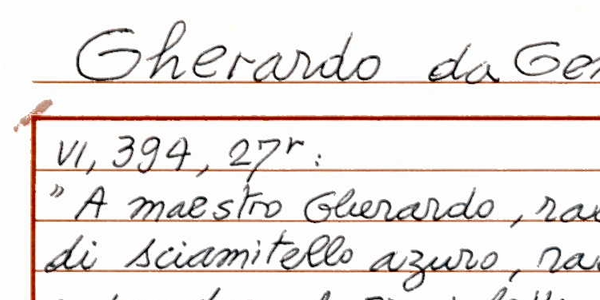 Gherardo da Gen
VI, 394, 27r:
"A maestro Gherardo, rac
di sciamitello azuro, rac